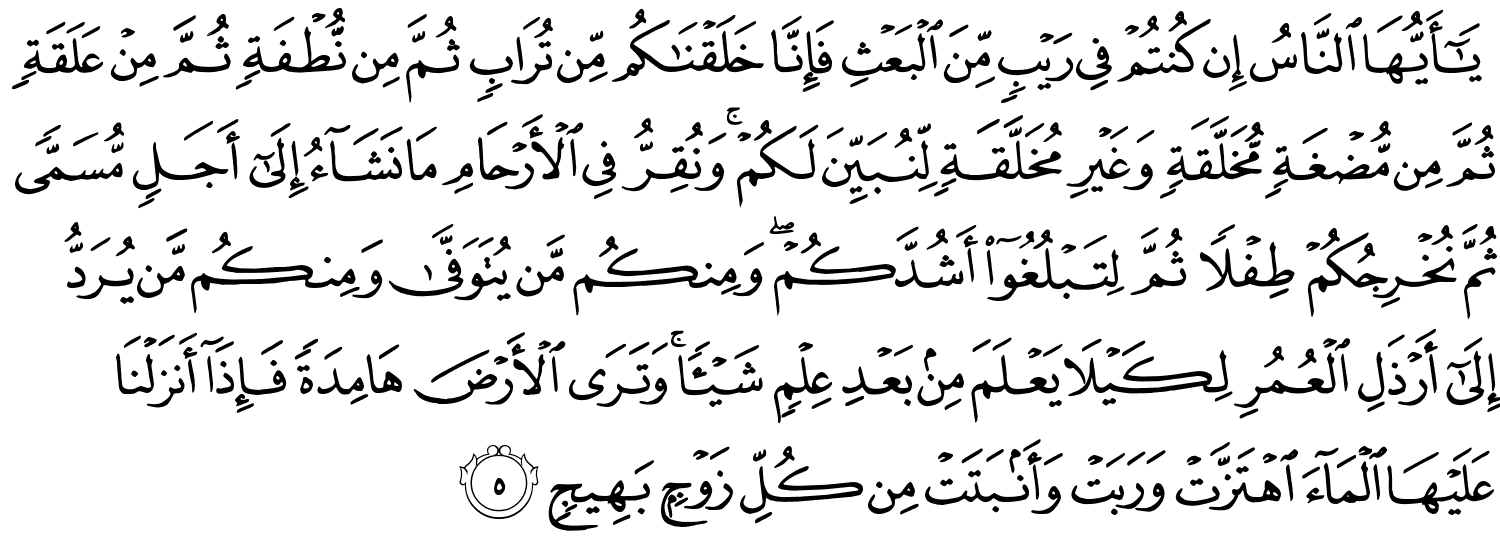 يَـٰٓأَيُّهَا ٱلنَّاسُ إِن كُنتُمْ فِى رَيْبٍ مِّنَ ٱلْبَعْثِ فَإِنَّا خَلَقْنَـٰكُم مِّن تُرَابٍ ثُمَّ مِن نُّطْفَةٍ ثُمَّ مِنْ عَلَقَةٍ
ثُمَّ مِن مُّضْغَةٍ مُّخَلَّقَةٍ وَغَيْرِ مُخَلَّقَةٍ لِّنُبَيِّنَ لَكُمْ ۚ وَنُقِرُّ فِى ٱلْأَرْحَامِ مَا نَشَآءُ إِلَىٰٓ أَجَلٍ مُّسَمًّى
ثُمَّ نُخْرِجُكُمْ طِفْلًا ثُمَّ لِتَبْلُغُوٓا۟ أَشُدَّكُمْ ۖ وَمِنكُم مَّن يُتَوَفَّىٰ وَمِنكُم مَّن يُرَدُّ
إِلَىٰٓ أَرْذَلِ ٱلْعُمُرِ لِكَيْلَا يَعْلَمَ مِنۢ بَعْدِ عِلْمٍ شَيْـًٔا ۚ وَتَرَى ٱلْأَرْضَ هَامِدَةً فَإِذَآ أَنزَلْنَا
عَلَيْهَا ٱلْمَآءَ ٱهْتَزَّتْ وَرَبَتْ وَأَنۢبَتَتْ مِن كُلِّ زَوْجٍۭ بَهِيجٍ ٥